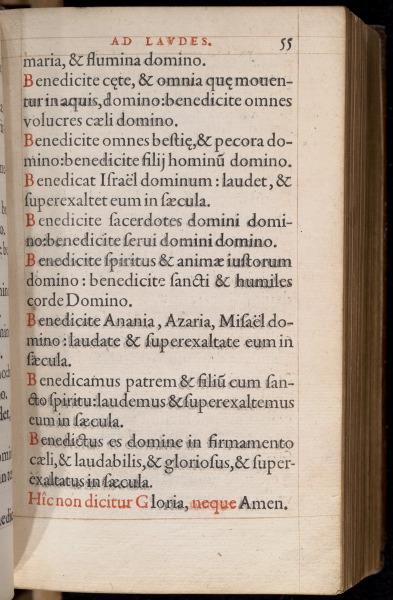 AD LAVDES. 55
maria, & flumina domino.
Benedicite cęte, & omnia quę mouen-
tur in aquis, domino: benedicite omnes
volucres cæli domino.
Benedicite omnes bestię, & pecora do-
mino: benedicite filij hominū domino.
Benedicat Iſraël dominum: laudet, &
superexaltet eum in ſæcula.
Benedicite ſacerdotes domini domi-
no: benedicite ſerui domini domino.
Benedicite ſpiritus & animæ iuſtorum
domino: benedicite ſancti & humiles
corde Domino.
Benedicite Anania, Azaria, Miſaël do-
mino: laudate & ſuperexaltate eum in
ſæcula.
Benedicamus patrem & filiū cum ſan-
cto ſpiritu: laudemus & ſuperexaltemus
eum in ſæcula.
Benedictus es domine in firmamento
cæli, & laudabilis, & glorioſus, & ſuper-
exaltatus in ſæcula.
Hîc non dicitur Gloria, neque Amen.